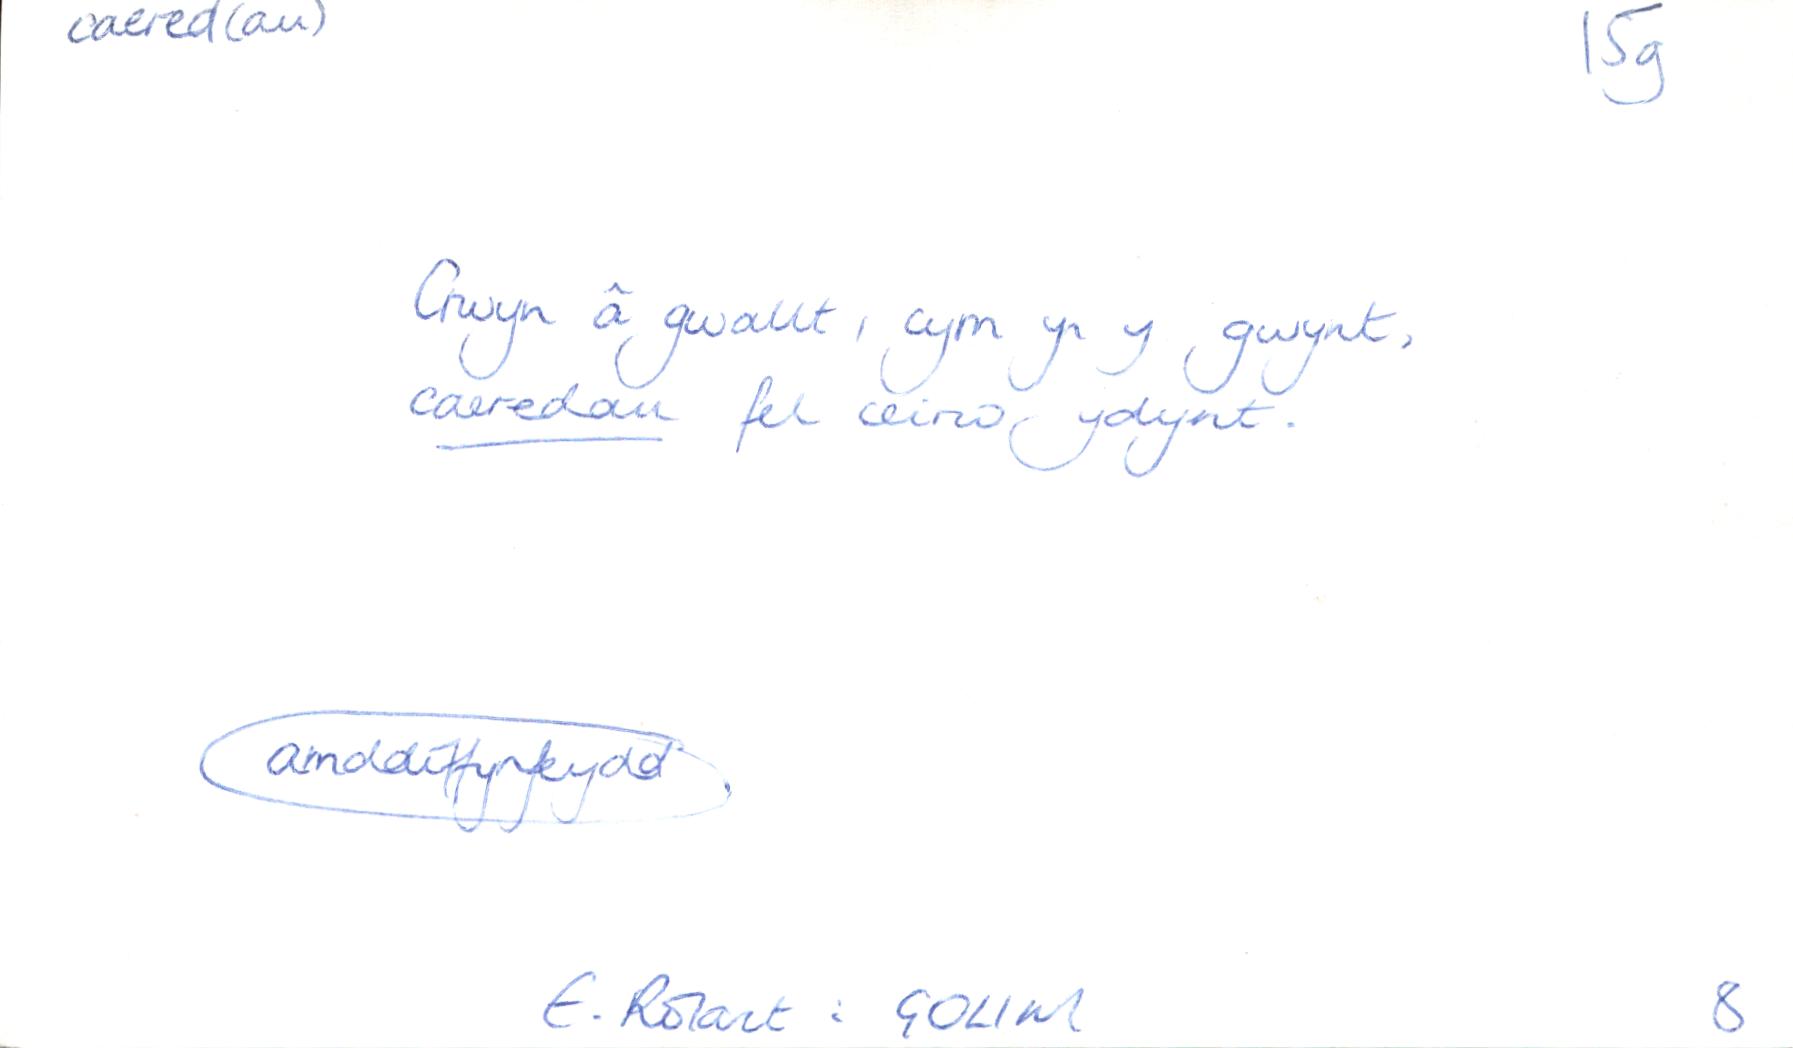 caered(au) 15g
Crwyn â gwallt, cyrn yn y gwynt,
caeredau fel ceirw ydynt.
amddiffynfeydd
E. Rolant: GOLIM 8